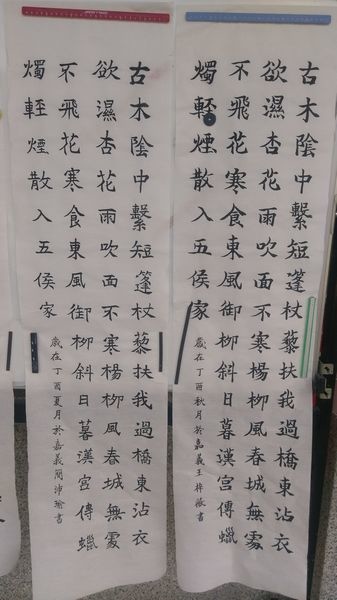 古木陰中繫短篷杖藜扶我過橋東沾衣
欲濕杏花雨吹面不寒楊柳風春城無處
不飛花寒食東風御柳斜日暮漢宮傳蠟
燭輕煙散入五侯家
歲在丁酉秋月於嘉義王梓薇書
古木陰中繫短篷杖藜扶我過橋東沾衣
欲濕杏花雨吹面不寒楊柳風春城無處
不飛花寒食東風御柳斜日暮漢宮傳蠟
燭輕煙散入五侯家
歲在丁酉夏月於嘉義簡沛瑜書